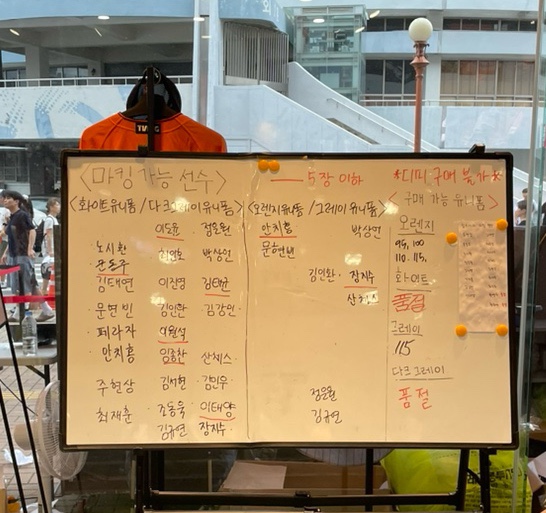 TWG
<마킹 가능 선수>
<화이트유니폼 / 다크그레이유니폼>
이도윤 정은원
노시환 박상언
문동주
김태연 이진영 김태균
문현빈 김인환 김강민
페라자 이원석
안치홍 임종찬 산체스
주현상 김서현 김민우
최재훈 조동욱 이태양
김규연 장지수
— 5장 이하
<오렌지유니폼 / 그레이유니폼>
안치홍 박상언
문현빈
김인환 장지수
산체스
정은원
김규연
*디미 구매 불가*
<구매 가능 유니폼>
오렌지
95, 100
110. 115.
화이트
품절
그레이
115
다크그레이
품절